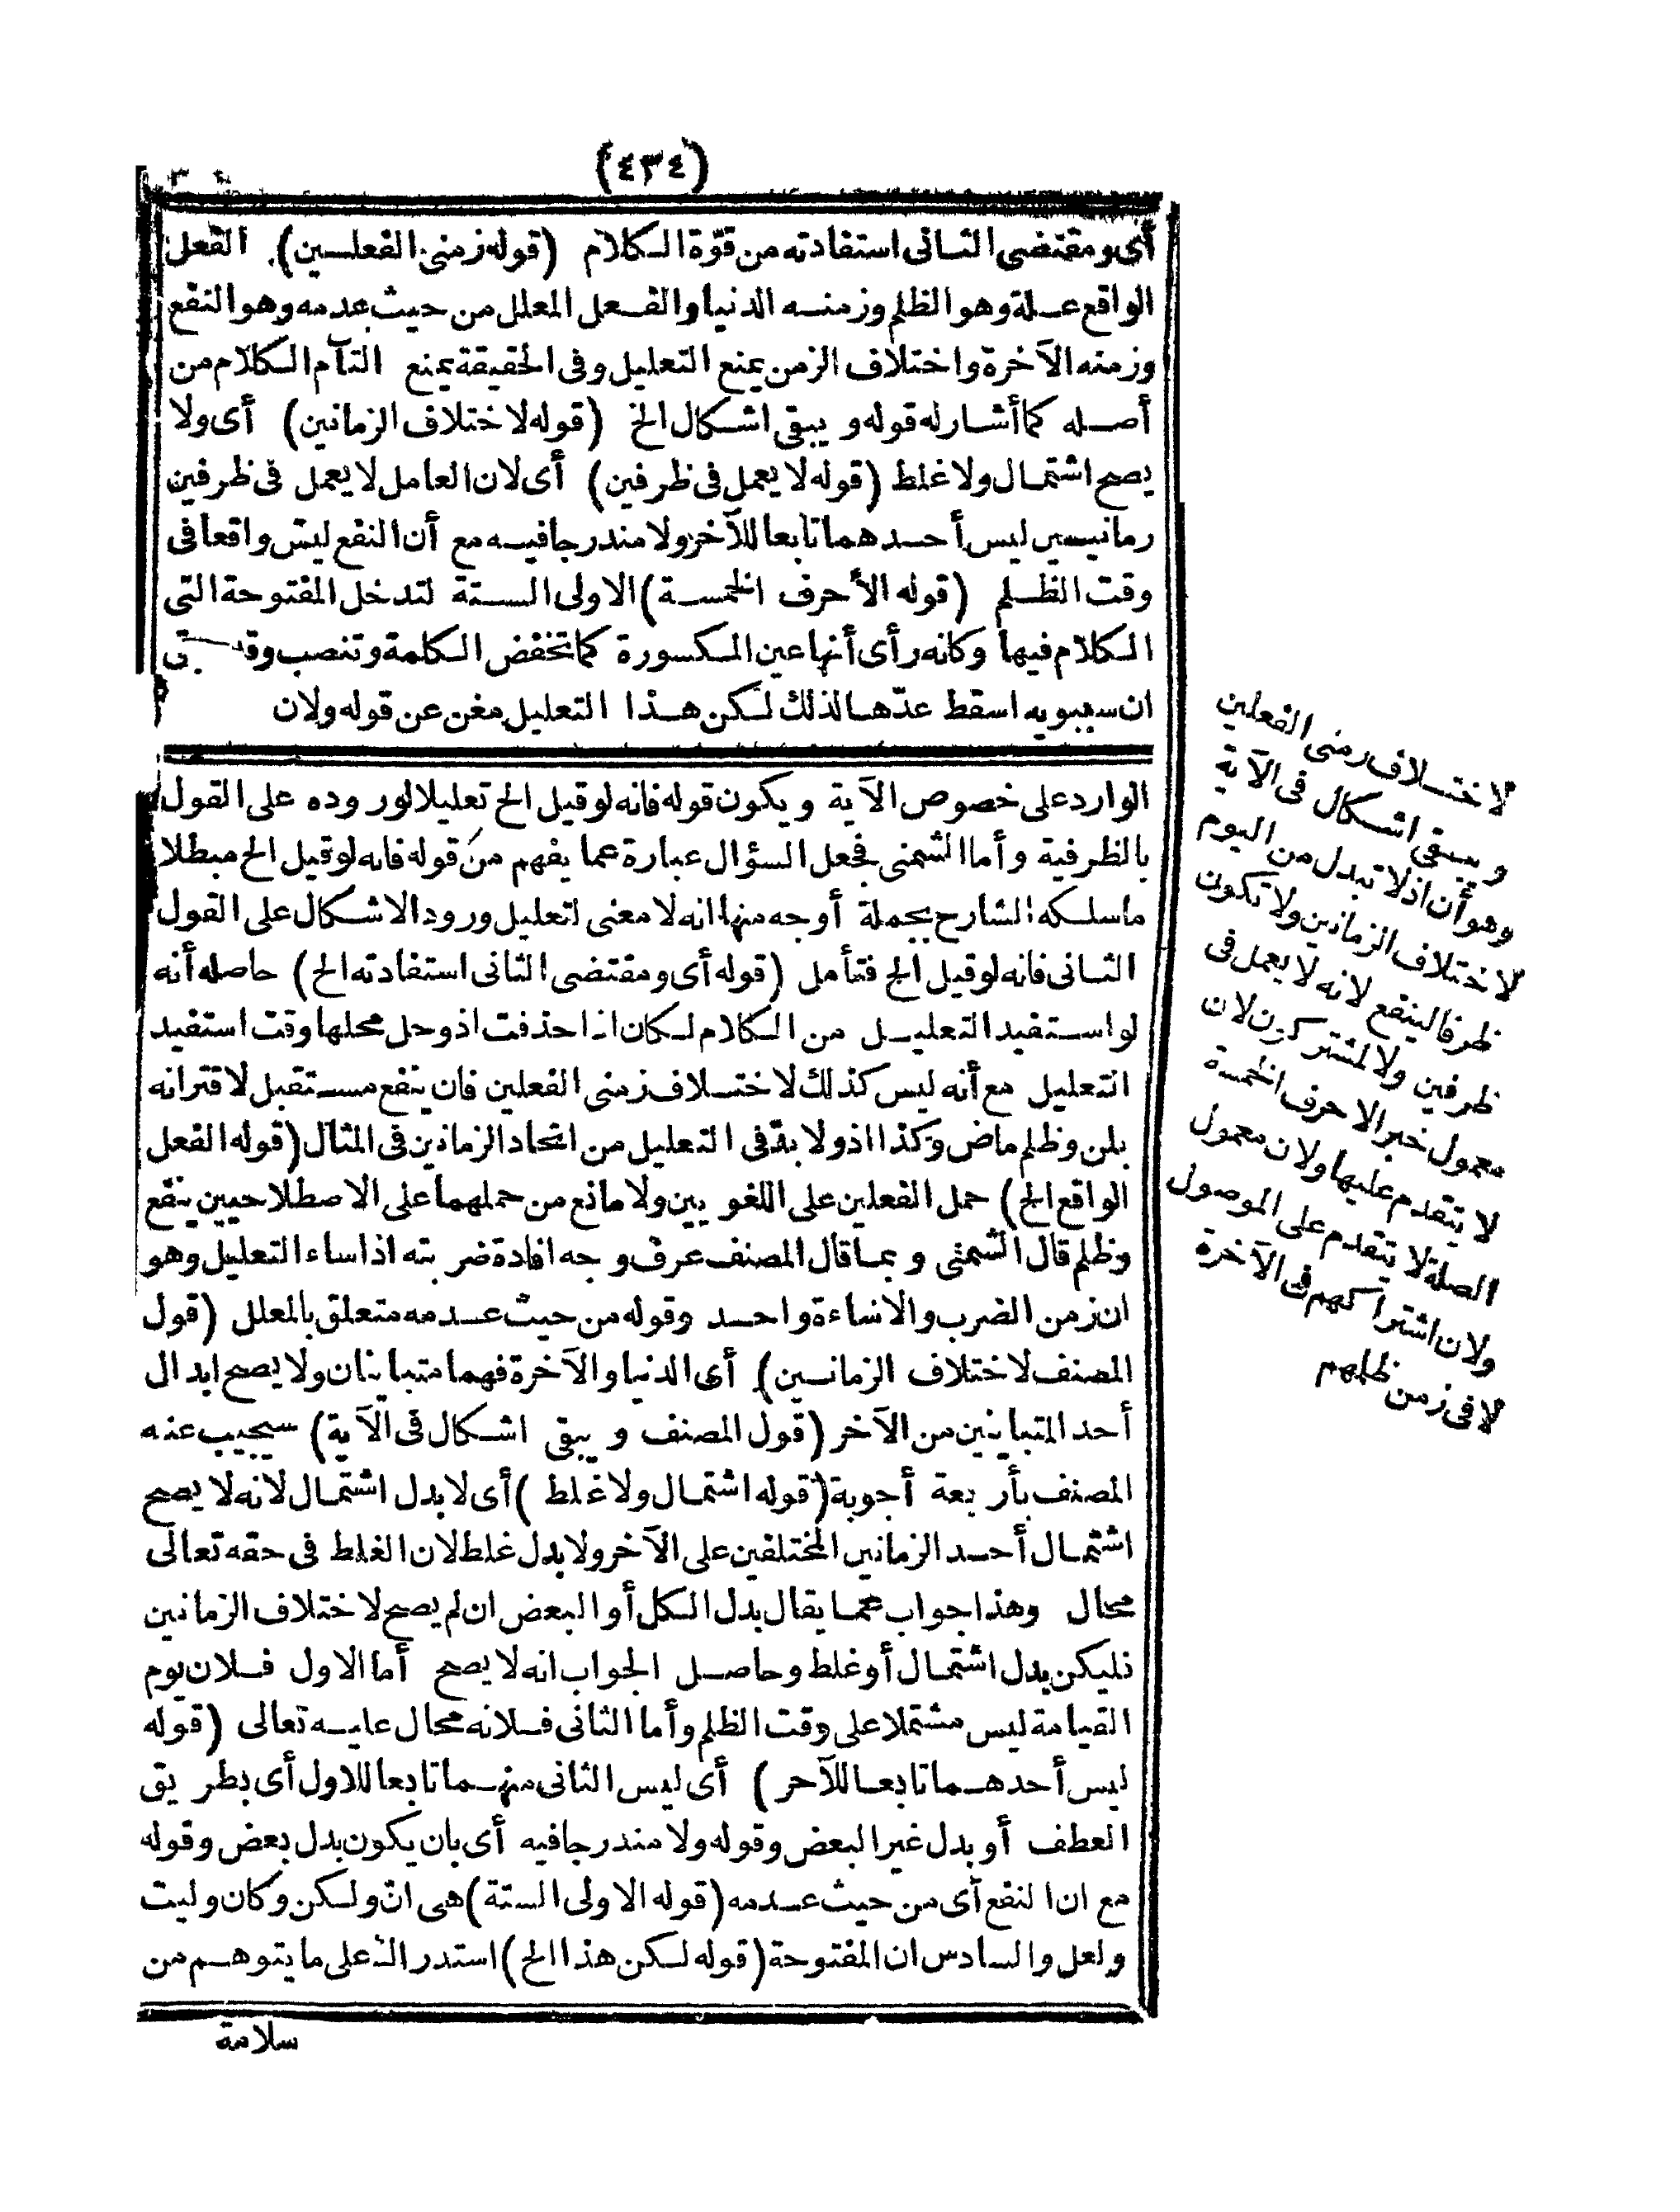 (٤٣٤)
أى ومقتضى الثانى استفادته من قوّة الكلام (قوله زمنى الفعلين) الفعل
الواقع علة وهو الظلم وزمنه الدنيا والفعل المعلل من حيث عدمه وهو النفع
وزمنه الآخرة واختلاف الزمن يمنع التعليل وفى الحقيقة يمنع التآم الكلام من
أصله كما أشار له قوله ويبقى اشكال الخ (قوله لاختلاف الزمانين) أى ولا
يصح اشتمال ولا غلط (قوله لا يعمل فى ظرفين) أى لان العامل لا يعمل فى ظرفين
زمانيين ليس أحدهما تابعا للآخر ولا مندرجا فيه مع أن النفع ليس واقعا فى
وقت الظلم (قوله الأحرف الخمسة) الاولى الستة لتدخل المفتوحة التى
الكلام فيها وكانه رأى أنها عين المكسورة كما تخفض الكلمة وتنصب
ان سيبويه اسقط عدّها لذلك لكن هذا التعليل مغن عن قوله ولان
الوارد على خصوص الآية ويكون قوله فانه لو قيل الخ تعليلا لوروده على القول
بالظرفية وأما الشمنى فجعل السؤال عبارة عما يفهم من قوله فانه لو قيل الخ مبطلا
ما سلكه الشارح بجملة أوجه منها انه لا معنى لتعليل ورود الاشكال على القول
الثانى فانه لو قيل الخ فتأمل (قوله أى ومقتضى الثانى استفادته الخ) حاصله أنه
لو استفيد التعليل من الكلام لكان اذا حذفت اذ وحل محلها وقت استفيد
التعليل مع أنه ليس كذلك لاختلاف زمنى الفعلين فان ينفع مستقبل لاقترانه
بلن وظلم ماض وكذا اذ ولا بدّ فى التعليل من اتحاد الزمانين فى المثال (قوله الفعل
الواقع الخ) حمل الفعلين على اللغويين ولا مانع من حملهما على الاصطلاحيين ينفع
وظلم قال الشمنى وبما قال المصنف عرف وجه افادة ضربته اذ اساء التعليل وهو
ان زمن الضرب والاساءة واحد وقوله من حيث عدمه متعلق بالمعلل (قول
المصنف لاختلاف الزمانين) أى الدنيا والآخرة فهما متباينان ولا يصح ابدال
أحد المتباينين من الآخر (قول المصنف ويبقى اشكال فى الآية) سيجيب عنه
المصنف بأربعة أجوبة (قوله اشتمال ولا غلط) أى لا بدل اشتمال لانه لا يصح
اشتمال أحد الزمانين المختلفين على الآخر ولا بدل غلط لان الغلط فى حقه تعالى
محال وهذا جواب عما يقال بدل الكل أو البعض ان لم يصح لاختلاف الزمانين
فليكن بدل اشتمال أو غلط وحاصل الجواب انه لا يصح أما الاول فلان يوم
القيامة ليس مشتملا على وقت الظلم وأما الثانى فلانه محال عليه تعالى (قوله
ليس أحدهما تابعا للآخر) أى ليس الثانى منهما تابعا للاول أى بطريق
العطف أو بدل غير البعض وقوله ولا مندرجا فيه أى بان يكون بدل بعض وقوله
مع ان النفع أى من حيث عدمه (قوله الاولى الستة) هى انّ ولكن وكان وليت
ولعل والسادس ان المفتوحة (قوله لكن هذا الخ) استدراك على ما يتوهم من
سلامة
لاختلاف زمنى الفعلين
ويبقى اشكال فى الآية
وهو أن اذ لا تبدل من اليوم
لاختلاف الزمانين ولا تكون
ظرفا لينفع لانه لا يعمل فى
ظرفين ولا لمشتركون لان
معمول خبر الاحرف الخمسة
لا يتقدم عليها ولان معمول
الصلة لا يتقدم على الموصول
ولان اشتراكهم فى الآخرة
لا فى زمن ظلمهم